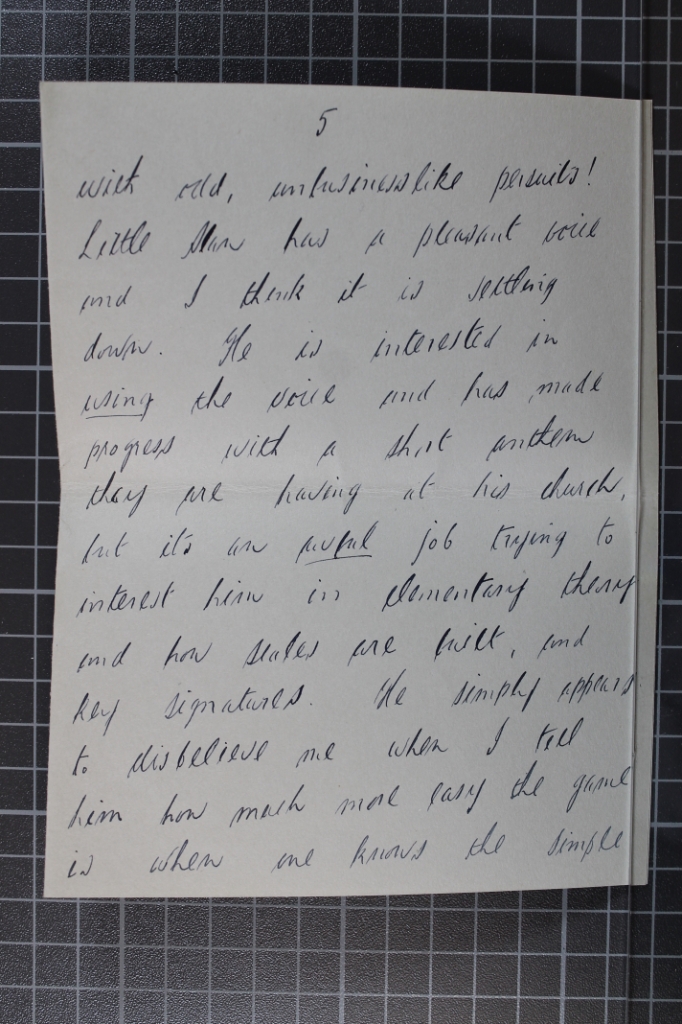 5
with odd, unbusinesslike persuits!
Little Man has a pleasant voice
and I think it is settling
down. He is interested in
using the voice and has made
progress with a short anthem
they are having at his church,
but it's an awful job trying to
interest him in elementary theory
and how scales are built, and
key signatures. He simply appears
to disbelieve me when I tell
him how much more easy the game
is when one knows the simple